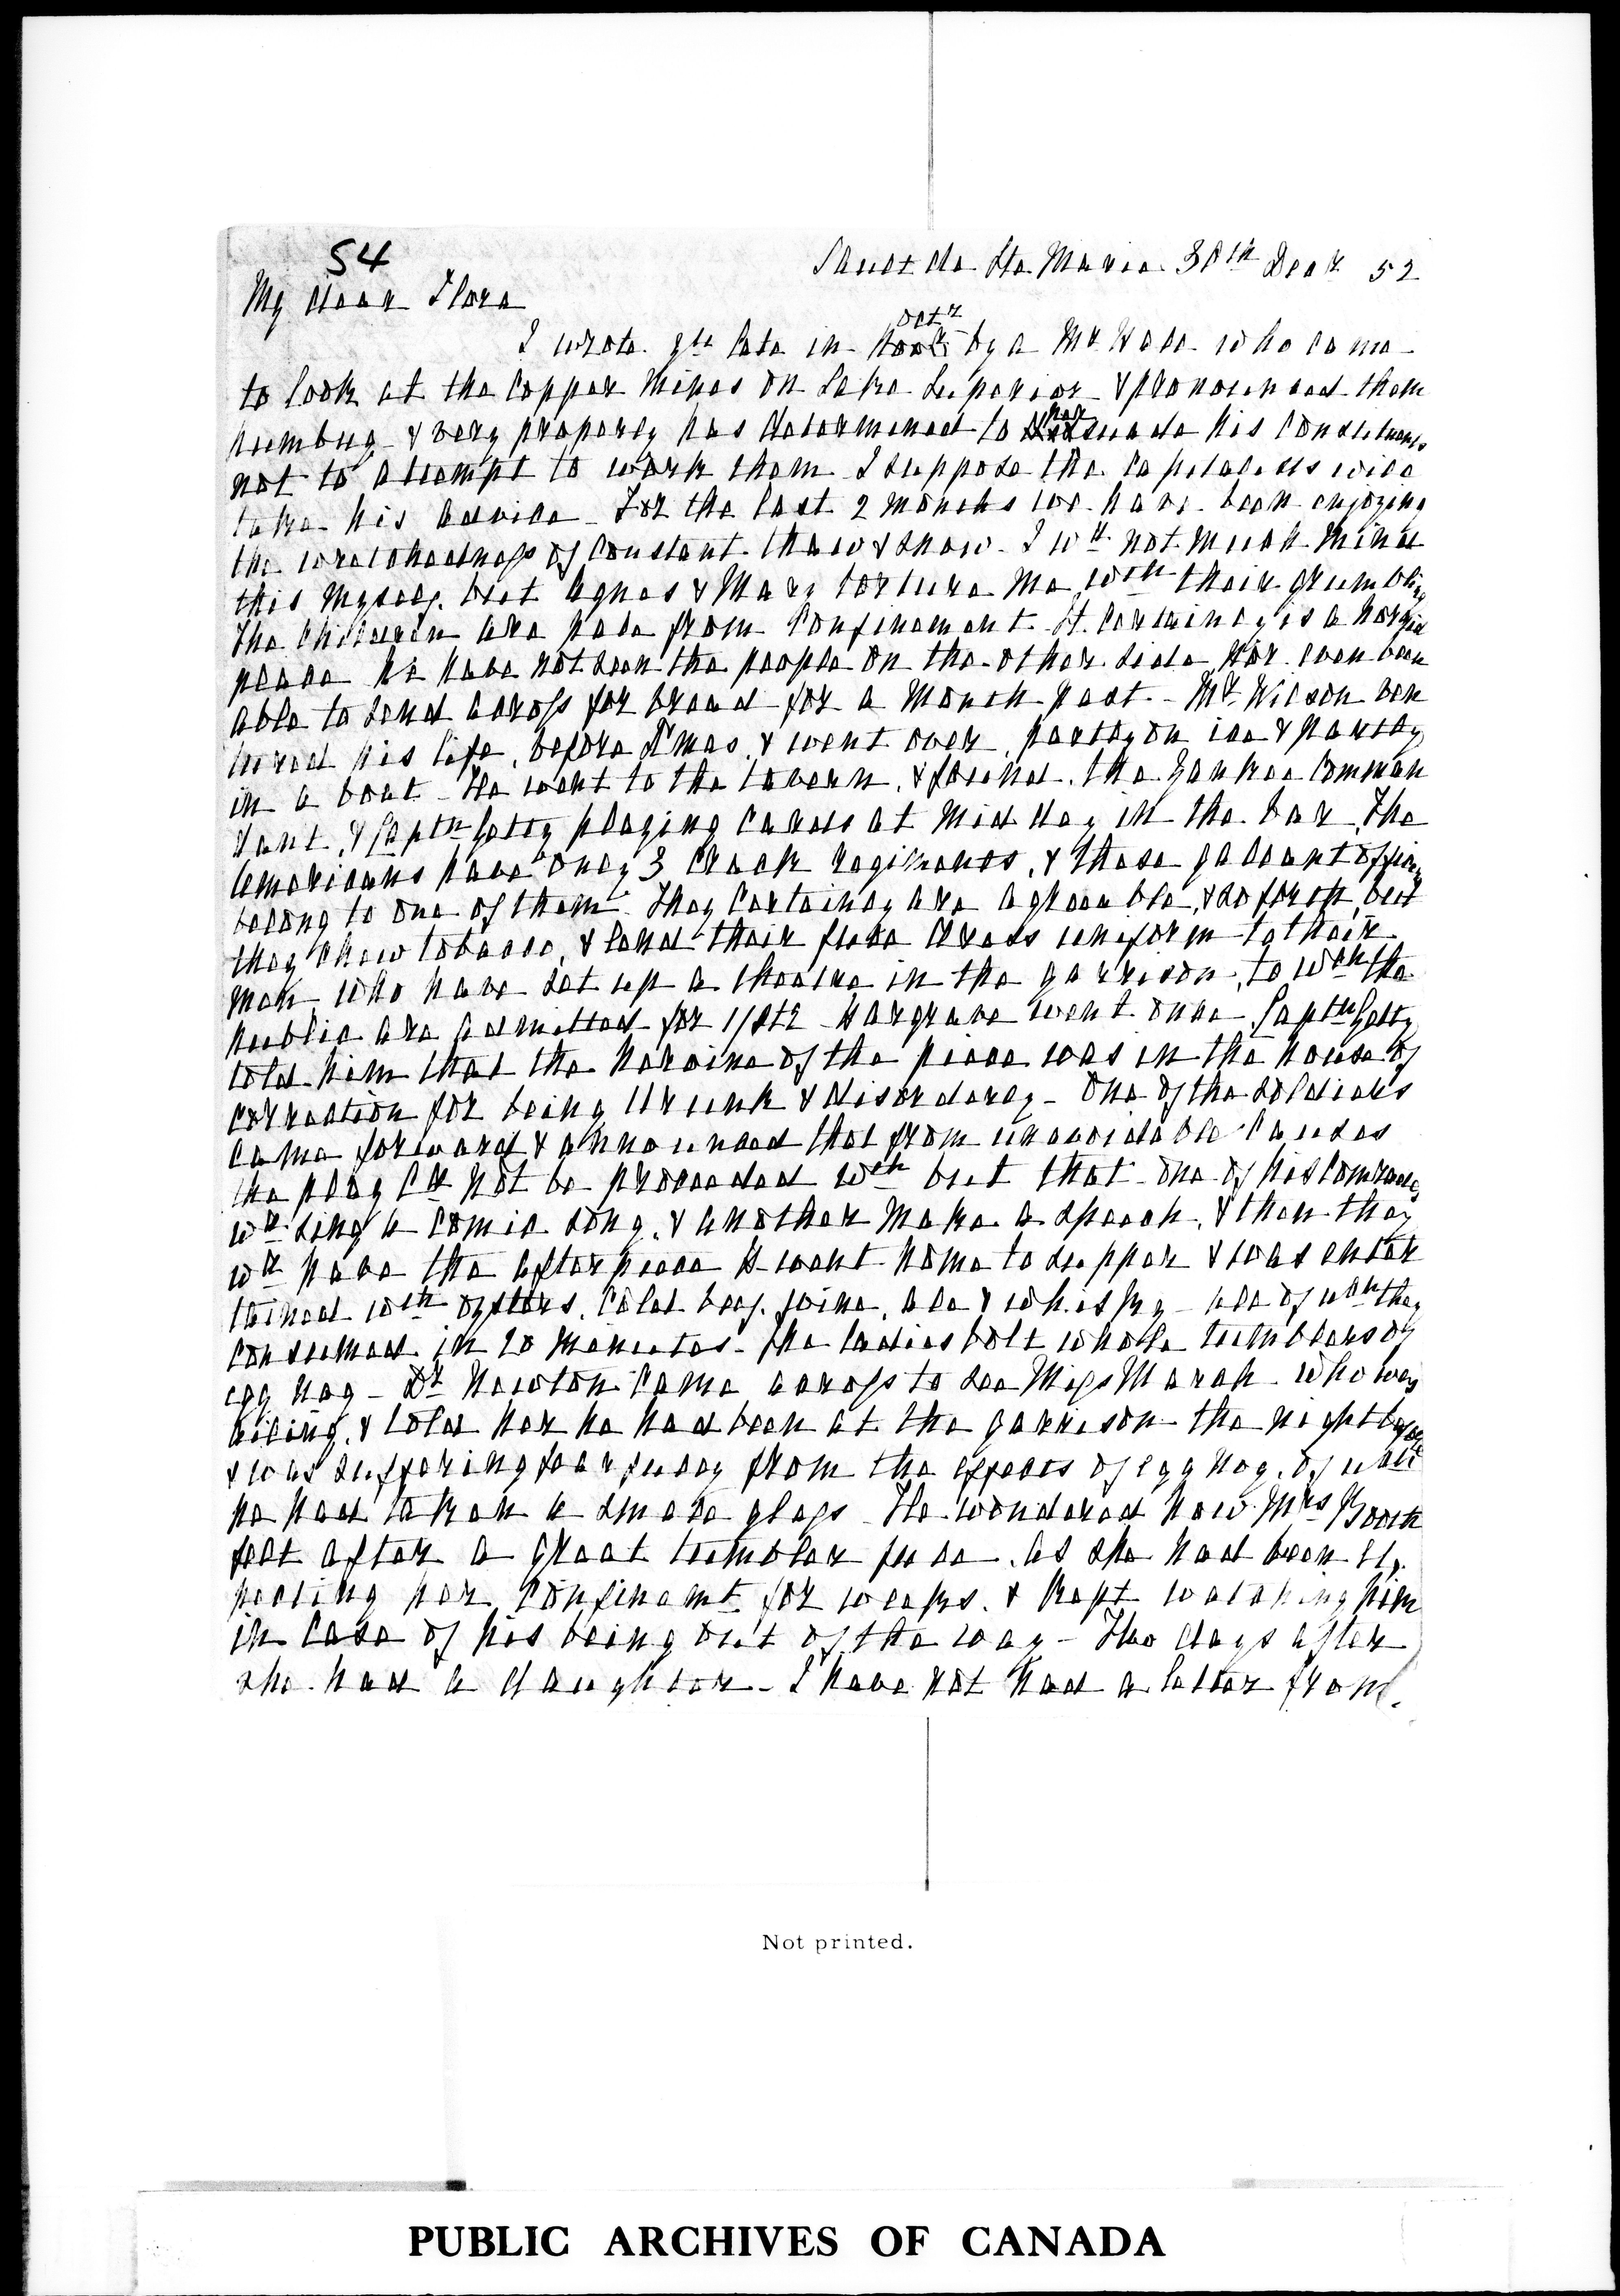 54
Sault de Ste. Marie. 30th Decr. 52
My dear Flora
I wrote yu late in Octr by a Mr Hall who came
to look at the Copper Mines on Lake Superior & pronounced them
humbug & very properly has determined to persuade his Constituents
not to attempt to work them. I suppose the Capitalists will
take his advice. For the last 2 months we have been enjoying
the wretchedness of constant thaw & snow. I wd not much mind
this myself. but Agnes & Mary torture me with their grumbling
The children are pale from confinement. It certainly is a horrid
place We have not seen the people on the other side Nor even been
able to send across for bread for a month past - Mr Wilson ven
tured his life, before Xmas, & went over, partly on ice & partly
in a boat. He went to the tavern, & found the Yankee Comman
dant, & Captn Getty playing cards at Mid day in the bar. The
Americans have only 3 crack regiments, & these gallant officers
belong to one of them. They certainly are agreeable, & so forth, but
they chew tobacco, & lend their full dress uniform to their
men who have set up a theatre in the garrison, to wch the
public are admitted for 1/ Hargrave went once. Captn Getty
told him that the heroine of the piece was in the house of
correction for being drunk & disorderly - One of the soldiers
came forward & announced that from unavoidable causes
the play cd not be proceeded with but that one of his comrades
wd sing a comic song, & another make a speech, & then they
wd have the afterpiece H went home to supper & was enter
tained with oysters. cold beef. wine, ale & whisky - all of wch they
consumed in 20 minutes - the ladies bolt whole tumblers of
egg nog - Dr Newton came across to see Miss Marah who was
ailing, & told her he had been at the garrison the night before
& was suffering fearfully from the effects of egg nog. of wch
he had taken a small glass He wondered how Mrs Booth
felt after a great tumbler full. as she had been ex,
pecting her confinemt for weeks. & kept watching him
in case of his being out of the way - Two days after
she had a daughter. I have not had a letter from
Not printed.
PUBLIC ARCHIVES OF CANADA